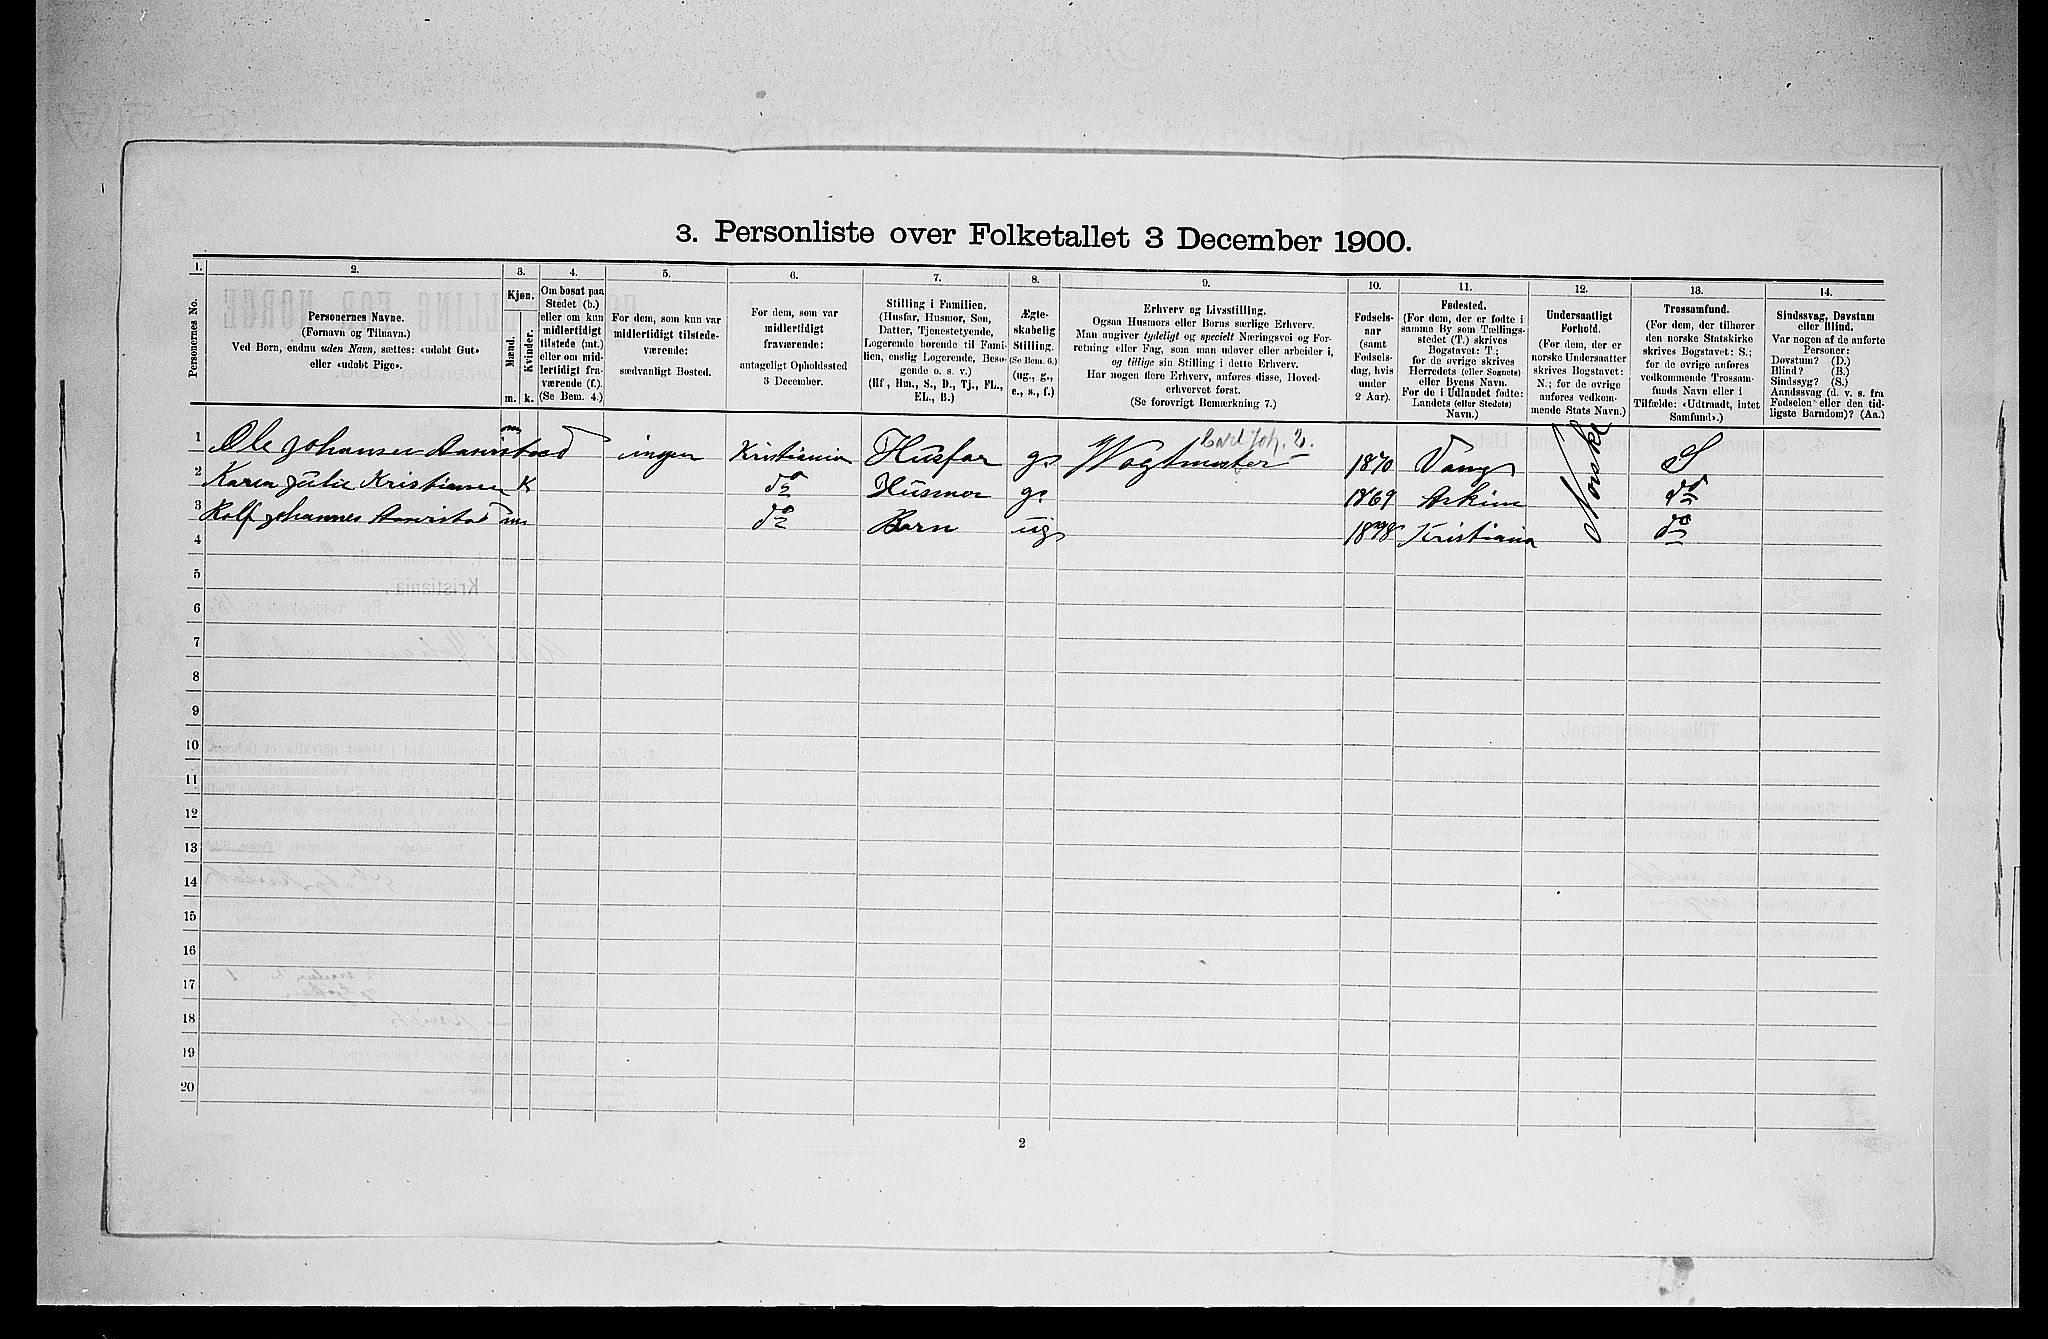 3. Personliste over Folketallet 3 December 1900.
1. 2. 3. 4. 5. 6. 7. 8. 9. 10. 11. 12. 13. 14.
Personernes No.
Personernes Navne.
(Fornavn og Tilnavn.)
Ved Børn, endnu uden Navn, sættes: «udøbt Gut»
eller «udøbt Pige».
Kjøn.
Mænd.
Kvinder.
m. k.
Om bosat paa
Stedet (b.)
eller om kun
midlertidigt
tilstede (mt.)
eller om mid-
lertidigt fra-
værende (f.)
(Se Bem. 4.)
For dem, som kun var
midlertidigt tilstede-
værende:
sædvanligt Bosted.
For dem, som var
midlertidigt
fraværende:
antageligt Opholdssted
3 December.
Stilling i Familien.
(Husfar, Husmor, Søn,
Datter, Tjenestetyende,
Logerende hørende til Fami-
lien, enslig Logerende, Besø-
gende o. s. v.)
(Hf., Hm., S., D., Tj., FL.,
EL., B.)
Ægte-
skabelig
Stilling.
(Se Bem. 6.)
(ug., g.,
e., s., f.)
Erhverv og Livsstilling.
Ogsaa Husmors eller Børns særlige Erhverv.
Man angiver tydeligt og specielt Næringsvei og For-
retning eller Fag, som man udøver eller arbeider i,
og tillige sin Stilling i dette Erhverv.
Har nogen flere Erhverv, anføres disse, Hoved-
erhvervet først.
(Se forøvrigt Bemærkning 7.)
Fødsels-
aar
(samt
Fødsels-
dag, hvis
under
2 Aar).
Fødested.
(For dem, der er fødte i
samme By som Tællings-
stedet (T.) skrives
Bogstavet: T.;
for de øvrige skrives
Herredets (eller Sognets)
eller Byens Navn.
For de i Udlandet fødte:
Landets (eller Stedets)
Navn.)
Undersaatligt
Forhold.
(For dem, der er
norske Undersaatter
skrives Bogstavet:
N.; for de øvrige
anføres vedkom-
mende Stats Navn.)
Trossamfund.
(For dem, der tilhører
den norske Statskirke
skrives Bogstavet: S.;
for de øvrige anføres
vedkommende Trossam-
funds Navn eller i
Tilfælde: «Udtraadt, intet
Samfund».)
Sindssvag, Døvstum
eller Blind.
Var nogen af de anførte
Personer:
Døvstum? (D.)
Blind? (B.)
Sindssyg? (S.)
Aandssvag (d. v. s. fra
Fødselen eller den tid-
ligste Barndom)? (Aa.)
1 Ole Johansen m ingen Kristiania Husfar g. Carl Joh. 1870 Vang Norske S
2 Karen Julie Kristiansen K do Husmor g. 1869 Askim do
3 Rolf Johannes m do Barn ug 1898 Kristiania do
4
5
6
7
8
9
10
11
12
13
14
15
16
17
18
19
20
2